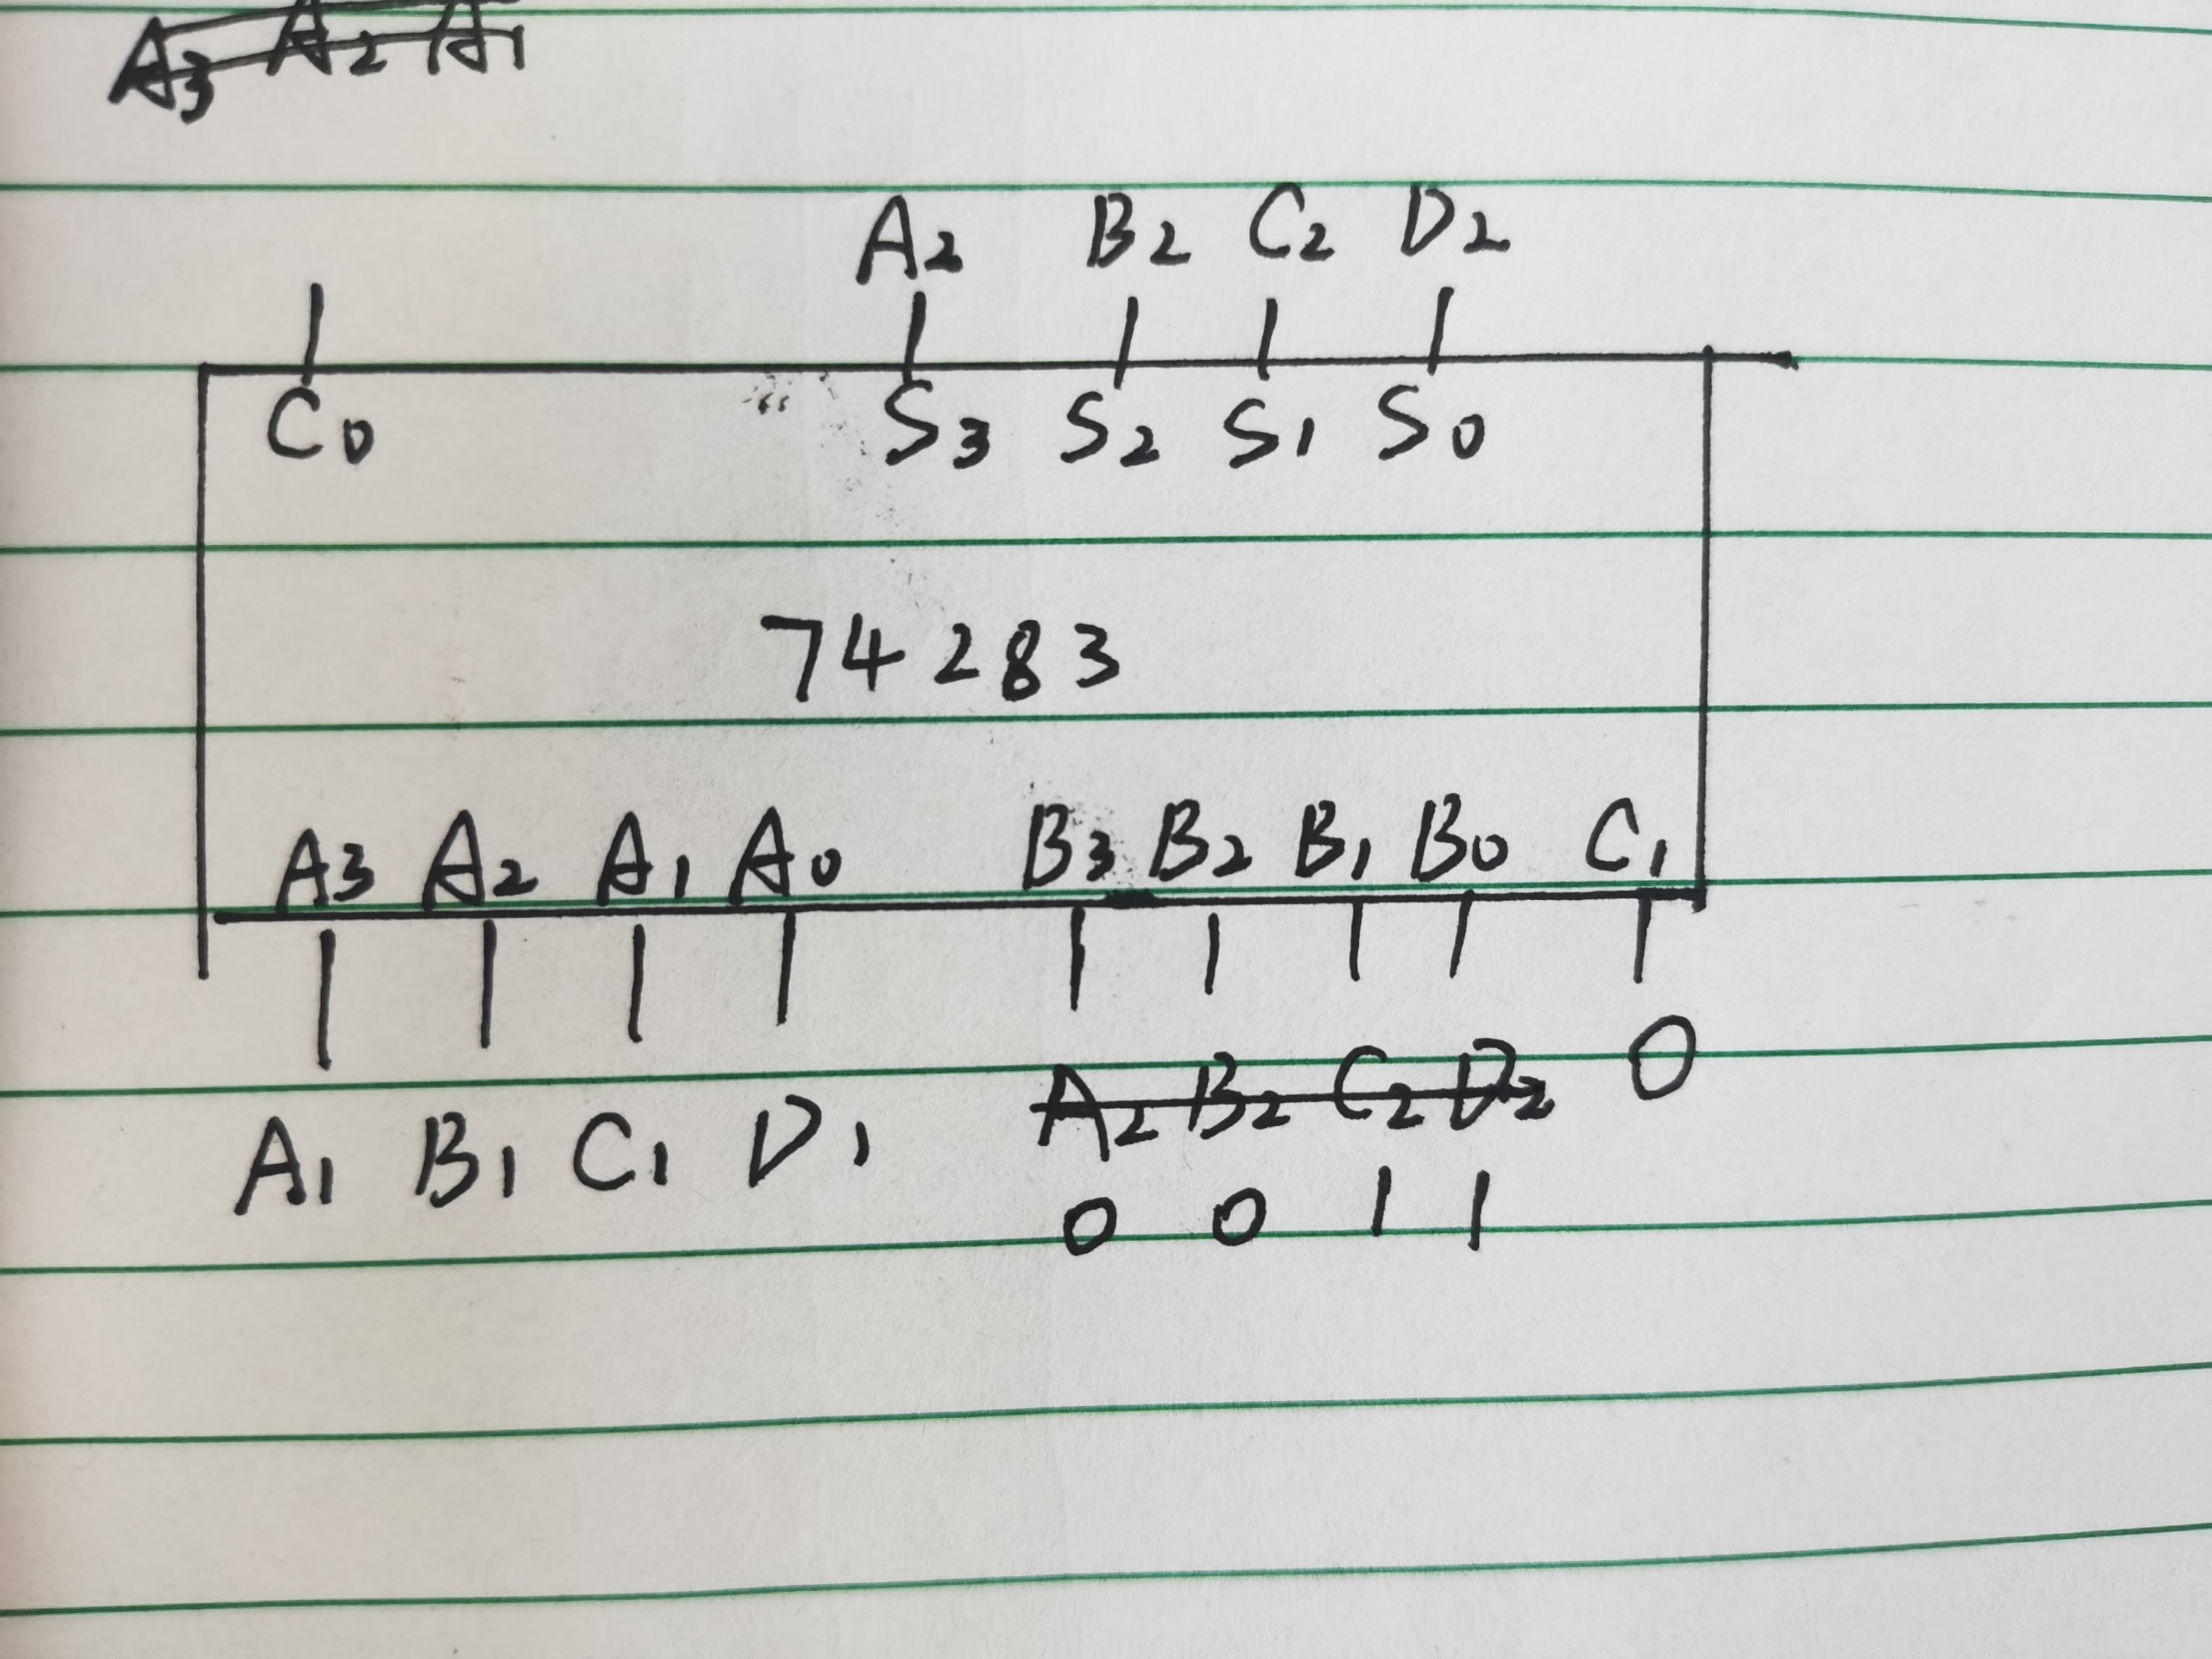 A3 A2 A1
A2 B2 C2 D2
C0 S3 S2 S1 S0
74283
A3 A2 A1 A0 B3 B2 B1 B0 C1
A2 B2 C2 D2 0
A1 B1 C1 D1
0 0 1 1